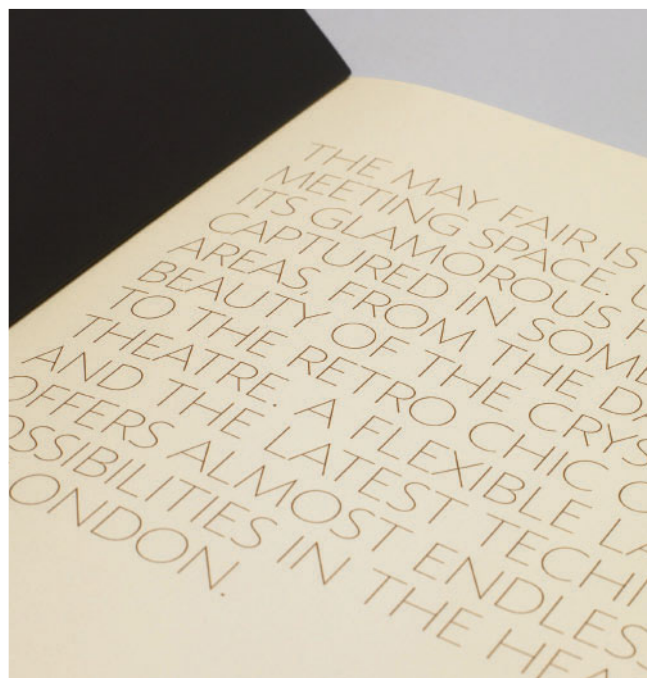 THE MAY FAIR IS
MEETING SPACE.
ITS GLAMOROUS
CAPTURED IN SOME
AREAS, FROM THE
BEAUTY OF THE
TO THE RETRO CHIC
THEATRE. A FLEXIBLE
AND THE LATEST
OFFERS ALMOST ENDLESS
OSSIBILITIES IN THE
ONDON.